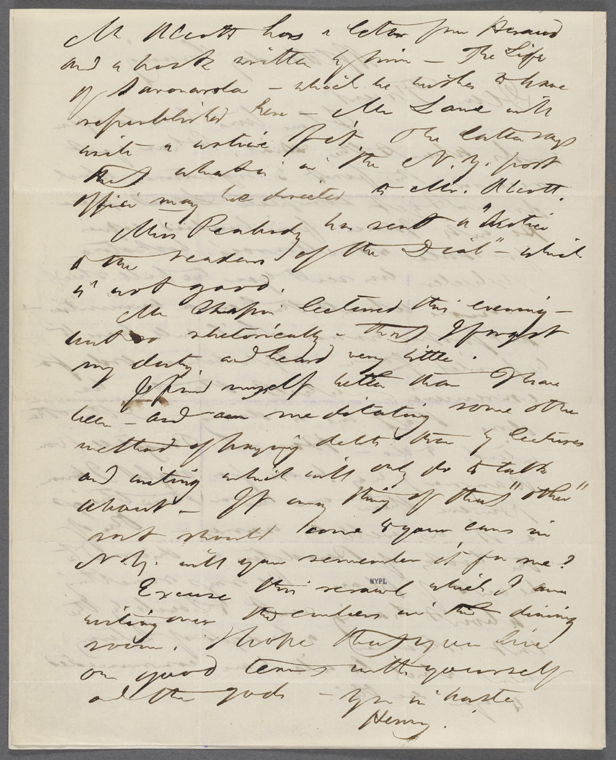 Mr Alcott has a letter from Heraud
and a book written by him — The Life
of Savonarola — which he wishes to have
republished here — Mr Lane will
write a notice of it. The latter says
that what is in the N.Y. post
office may be directed to Mr. Alcott.
Miss Peabody has sent a "Notice
to the readers of the Dial" — which
is not good.
Mr Chapin lectured this evening —
but so rhetorically — that I forgot
my duty and heard very little.
I find myself better than I have
been — and am meditating some other
method of paying debts than by lectures
and writing which will only do to talk
about — If any thing of that "other"
sort should come to your ears in
N.Y. will you remember it for me?
NYPL
Excuse this scrawl which I am
writing over the embers in the dining
room. I hope that you live
on good terms with yourself
and the gods — Yrs in haste
Henry.